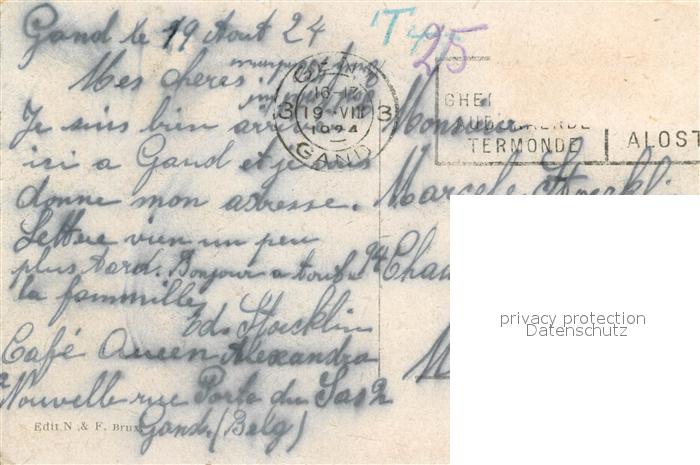 Gand le 19 Aout 24
Mes cheres
Je suis bien arrivé
isi a Gand et je vous
donne mon adresse.
Lettre vien un peu
plus tard. Bonjour a toute
la fammille
Ed. Stoecklin
Café Queen Alexandra
Nouvelle rue Porte du Sas 2
Gand. (Belg)
Edit N. & F. Brux
T
25
GENT
16-17
3 19 VIII 3
1924
GAND
GHEN
AUDENARDE
TERMONDE
ALOST
Monsieur
Marcel Stoeckli
94 Chau
M
privacy protection
Datenschutz